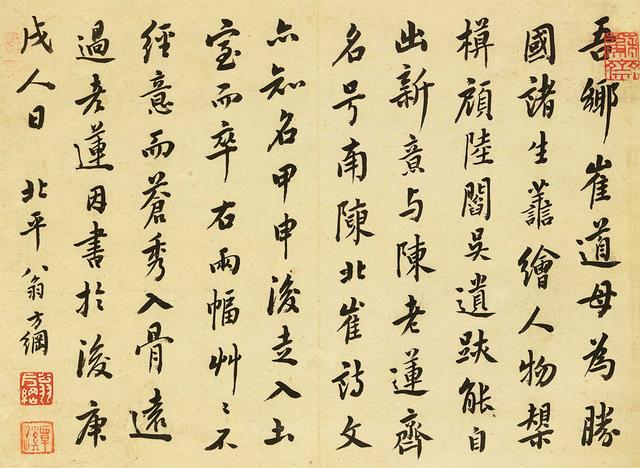 吾鄉崔道母為勝
國諸生譱繪人物槼
橅顧陸閻吳遺跡能自
出新意与陳老蓮齊
名号南陳北崔詩文
亦知名甲申後走入土
室而卒右兩幅艸〻不
經意而蒼秀入骨遠
過老蓮因書於後庚
戌人日 北平翁方綱
翁方綱
覃溪